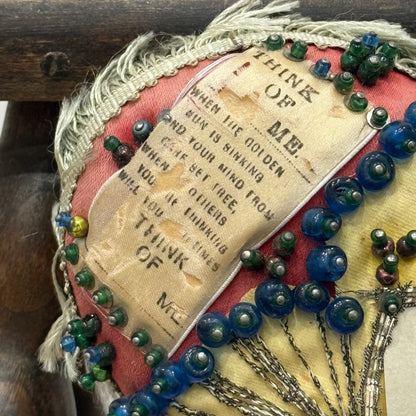 THINK
OF
ME
WHEN THE GOLDEN
SUN IS SINKING
AND YOUR MIND FROM
CARE SET FREE
WHEN OF OTHERS
YOU ARE THINKING
WILL YOU TIMES
THINK
OF
ME